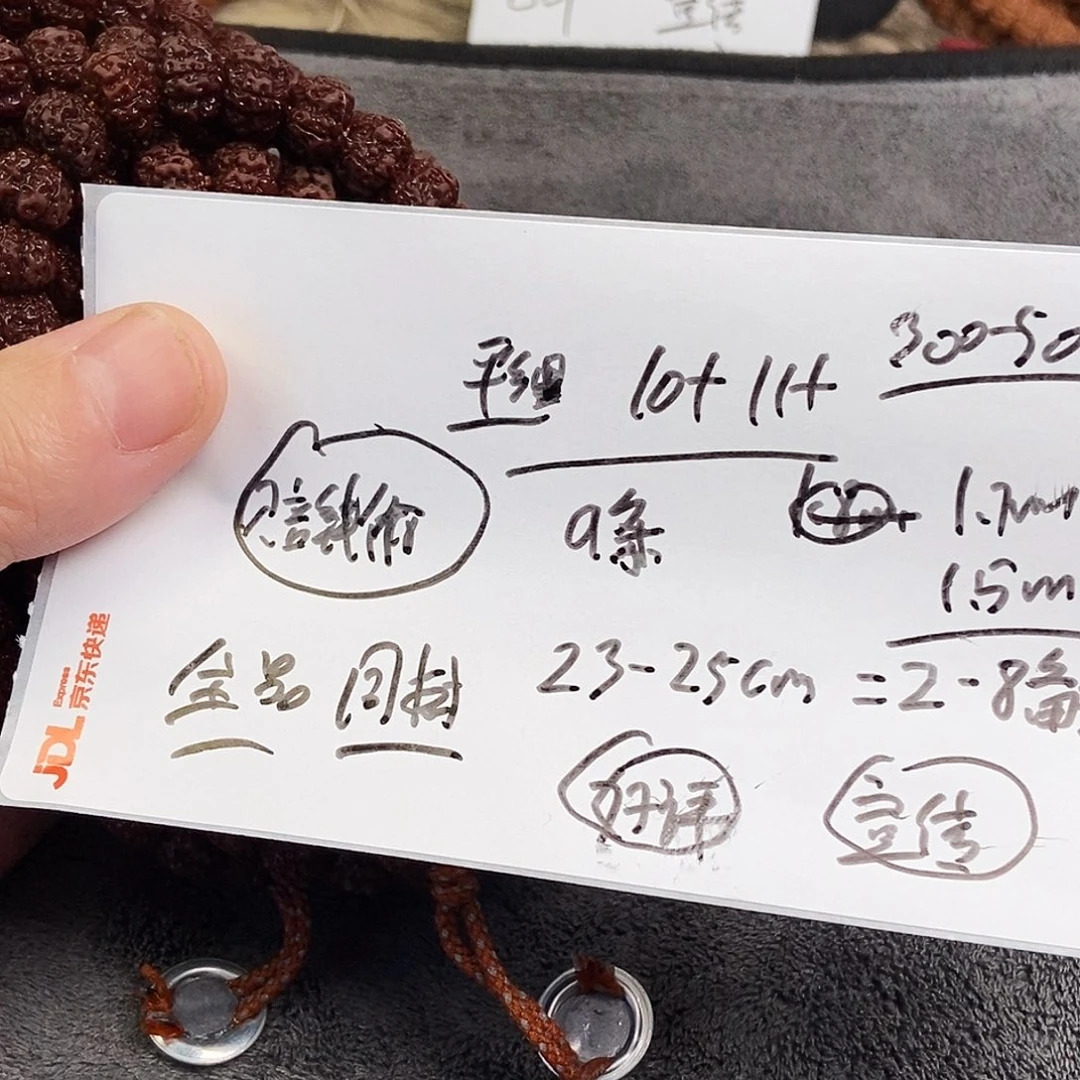 宣传
平细 10+ 11+ 300-50
赔钱价 9条 1.7mm
1.5m
全品 同树 23-25cm =2-8
好评 宣传
JDL Express
京东快递